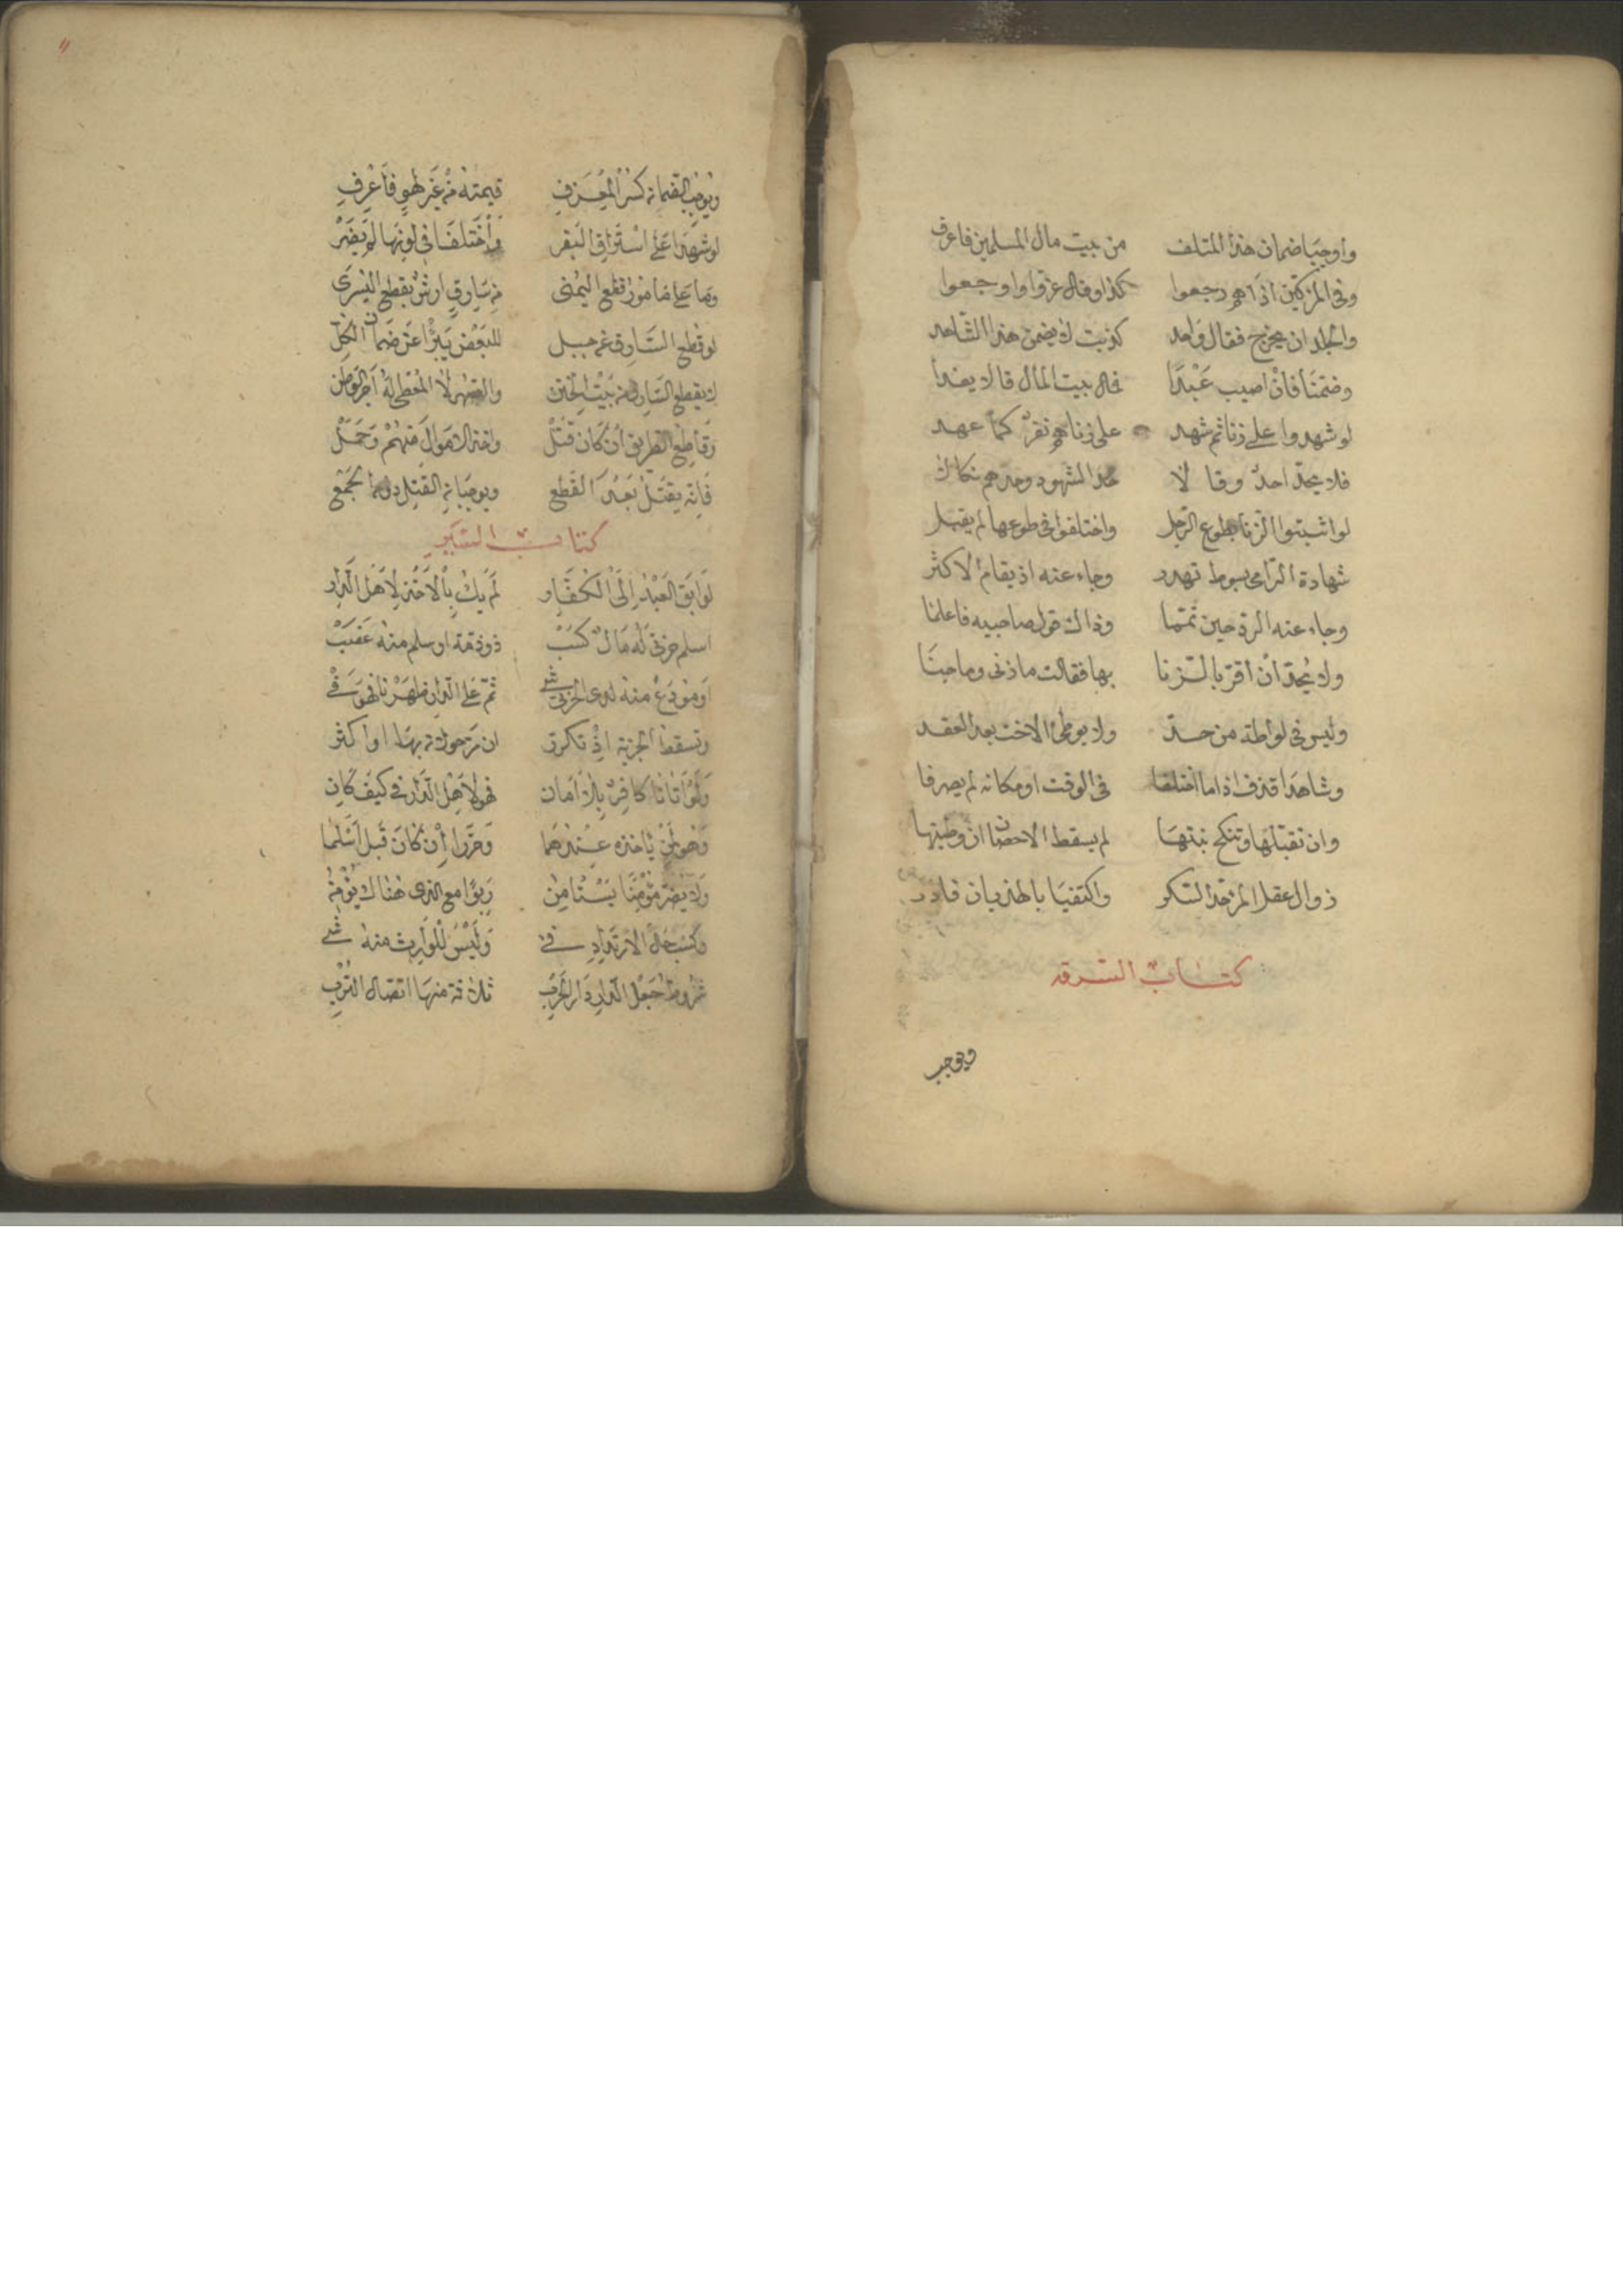 واوجبا ضمان هذا المتلف من بيت مال المسلمين فاعرف
وفى المزكين اذا هم رجعوا كذا وقال عزروا واوجعوا
والجلد ان يجرح فقال واحد كذبت لا يضمن هذا الشاهد
وضمنا فان اصيب عبدا فال بيت المال قالا يفدا
لو شهدوا على زنا ثم شهد على زناهم نفر كما عهد
فلا يحد احد وقالا تحد الشهود وحدهم نكالا
لو اثبتوا الزنا بطوع الرجل واختلفوا فى طوعها لم يقبل
شهادة الرامى بسوط تهدر وجاء عنه اذ يقام الاكثر
وجاء عنه الرد حين تمما وذاك قول صاحبيه فاعلما
ولا يحد ان اقر بالزنا بها فقالت ما دنى وما جنا
وليس فى لواطة من حد ولا بوطئ الاخت بعد العقد
وشاهدا قذف اذا ما اختلفا فى الوقت او مكانه لم يصرفا
وان تقبلها وتنكح بنتها لم يسقط الاحصان ان وطئتها
زوال عقل المرء حد السكر واكتفيا بالهذيان فادر
كتاب السرقه
ويوجب
ويوجب الضمان كسر المعزف قيمته من غير لهو فاعرف
لو شهدا على استراق البقر واختلفا فى لونها لم يضر
وما على مامور قطع اليمنى من سارق ارش بقطع اليسرى
لو قطع السارق عن للبعض يبرا عن ضمان الكل
لا يقطع السارق من بيت الختن والصهر لا المعطى له اجر الوطن
وقاطع الطريق ان كان قتل واخذ الاموال منهم وحمل
فانه يقتل بعد القطع ويوجبان القتل دون الجمع
كتاب السير
لو ابق العبد الى الكفار لم يك بالاخذ لاهل الدار
اسلم حربى له مال كسب ذو ذمة او سلم منه غصب
او مودع منه لدى الحربى شى ثم على الدار ظهرنا فهو فى
وتسقط الجزية اذ تكرر ان مر حولان بها او اكثر
ولو اتانا كافر بلا امان فهو لاهل الدار فى كيف كان
وهو لمن ياخذه عندهما وحررا ان كان قبل اسلما
ولا يضر مؤمنا يستامن ربوا مع الذى هناك يؤمن
وكسب حال الارتداد فى وليس للوارث منه شى
شروط جعل الدار دار الحرب ثلاثة منها اتصال الترب